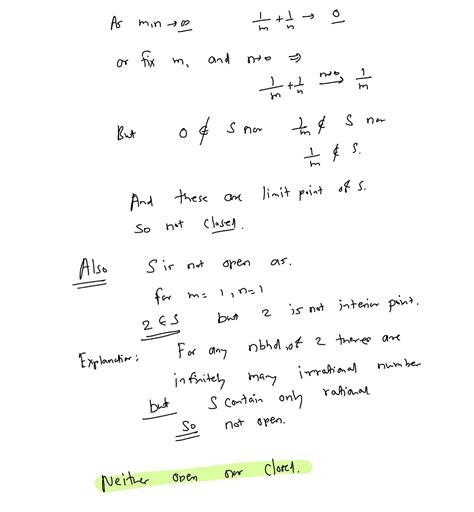 As m,n → ∞ 1/m + 1/n → 0
or fix m, and n→∞ ⇒
1/m + 1/n —n→∞→ 1/m
But 0 ∉ S nor 1/m ∉ S nor
1/m ∉ S.
And these are limit point of S.
So not closed.
Also S is not open as.
for m= 1, n=1
2 ∈ S but 2 is not interior point.
Explanation: For any nbhd, of 2 theres are
infinitely many irrational number
but S contain only rational
So not open.
Neither open nor closed.